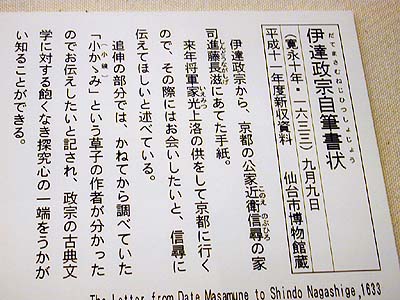 伊達政宗自筆書状
だてまさむねじひつしょじょう
(寛永十年・一六三三)九月九日
平成十一年度新収資料 仙台市博物館蔵
伊達政宗から、京都の公家近衛信尋の家
このえ のぶひろ
司進藤長滋にあてた手紙。
しんどうながしげ
来年将軍家光上洛の供をして京都に行く
いえみつ
ので、その際にはお会いしたいと、信尋に
伝えてほしいと述べている。
追伸の部分では、かねてから調べていた
「小かゞみ」という草子の作者が分かった
(小鏡)
のでお伝えしたいと記され、政宗の古典文
学に対する飽くなき探究心の一端をうかが
い知ることができる。
The Letter from Date Masamune to Shindo Nagashige,1633